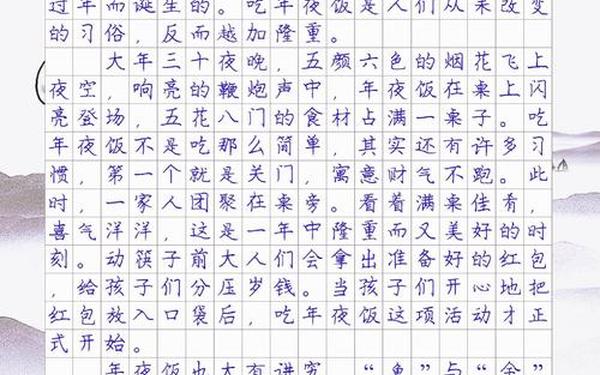 过年而诞生的。吃年夜饭是人们从未改变
的习俗，反而越加隆重。
大年三十夜晚，五颜六色的烟花飞上
夜空，响亮的鞭炮声中，年夜饭在桌上闪
亮登场，五花八门的食材占满一桌子。吃
年夜饭不是吃那么简单，其实还有许多习
惯，第一个就是关门，寓意财气不跑。此
时，一家人团聚在桌旁。看着满桌佳肴，
喜气洋洋，这是一年中隆重而又美好的时
刻。动筷子前大人们会拿出准备好的红包
，给孩子们分压岁钱。当孩子们开心地把
红包放入口袋后，吃年夜饭这项活动才正
式开始。
年夜饭也大有讲究，“鱼”与“余”